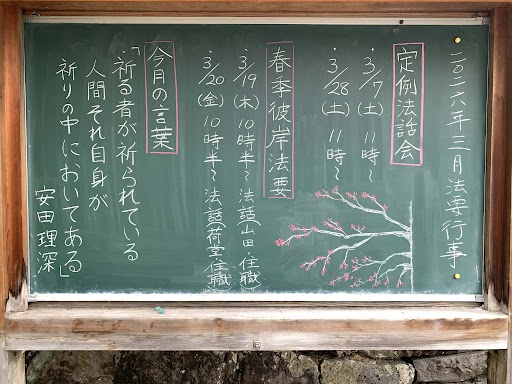 二〇二六年三月法要行事
定例法話会
・3/7(土) 11時〜
・3/28(土) 11時〜
春季彼岸法要
・3/19(木) 10時半〜 法話 山田・住職
・3/20(金) 10時半〜 法話(荷堂・住職
今月の言葉
「祈る者が祈られている
人間それ自身が
祈りの中においてある」
安田理深